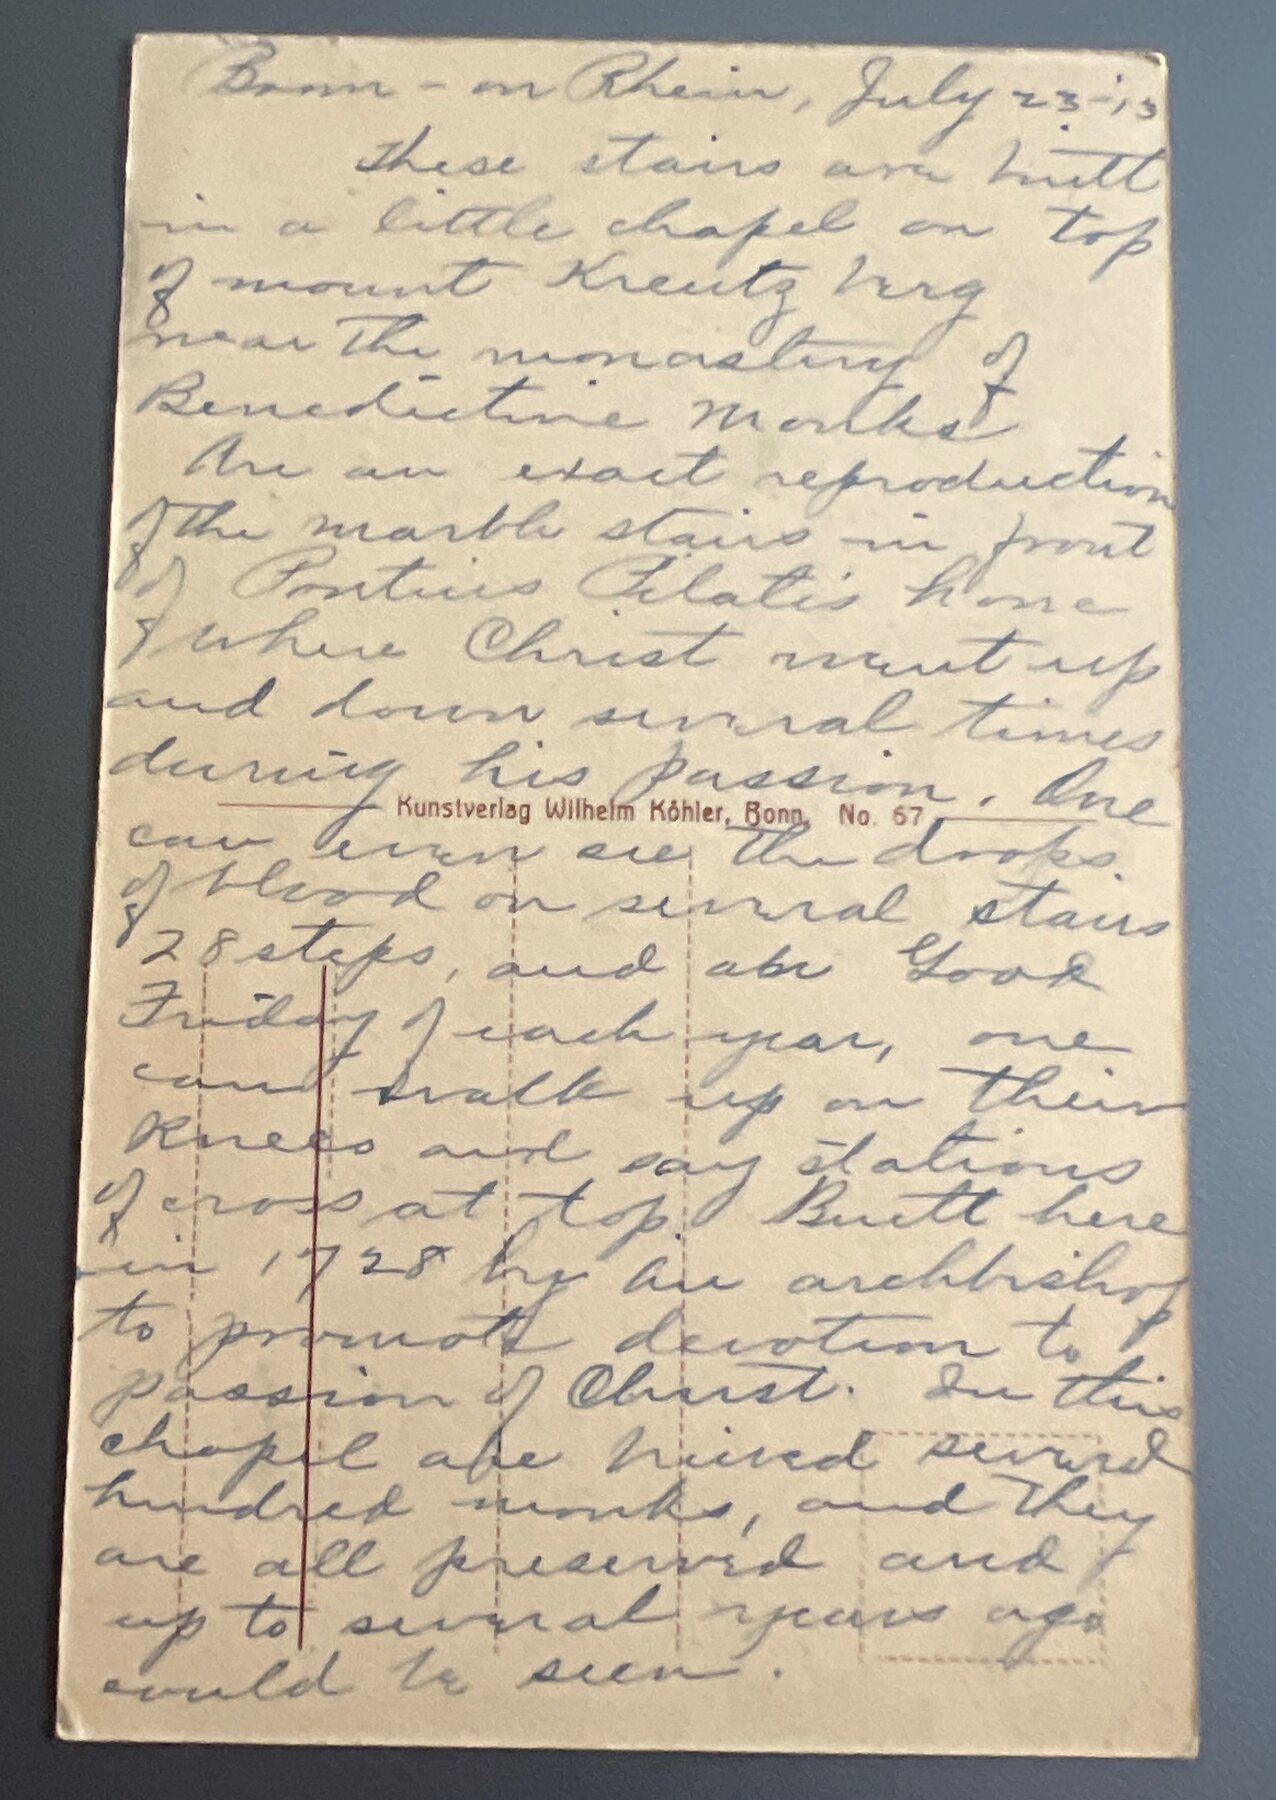 Bonn - on Rhein, July 23-'13
These stairs are built
in a little chapel on top
of mount Kreutz berg
near the monastery of
Benedictine Monks
Are an exact reproduction
of the marble stairs in front
of Pontius Pilatis home
of where Christ went up
and down several times
during his passion. One
Kunstverlag Wilhelm Köhler, Bonn. No. 67
can even see the drops
of blood on several stairs
28 steps, and on Good
Friday of each year, one
can walk up on their
Knees and say stations
of cross at top. Built here
in 1728 by an archbishop
to promote devotion to
passion of Christ. In this
chapel are buried several
hundred monks, and they
are all preserved and
up to several years ago
could be seen.